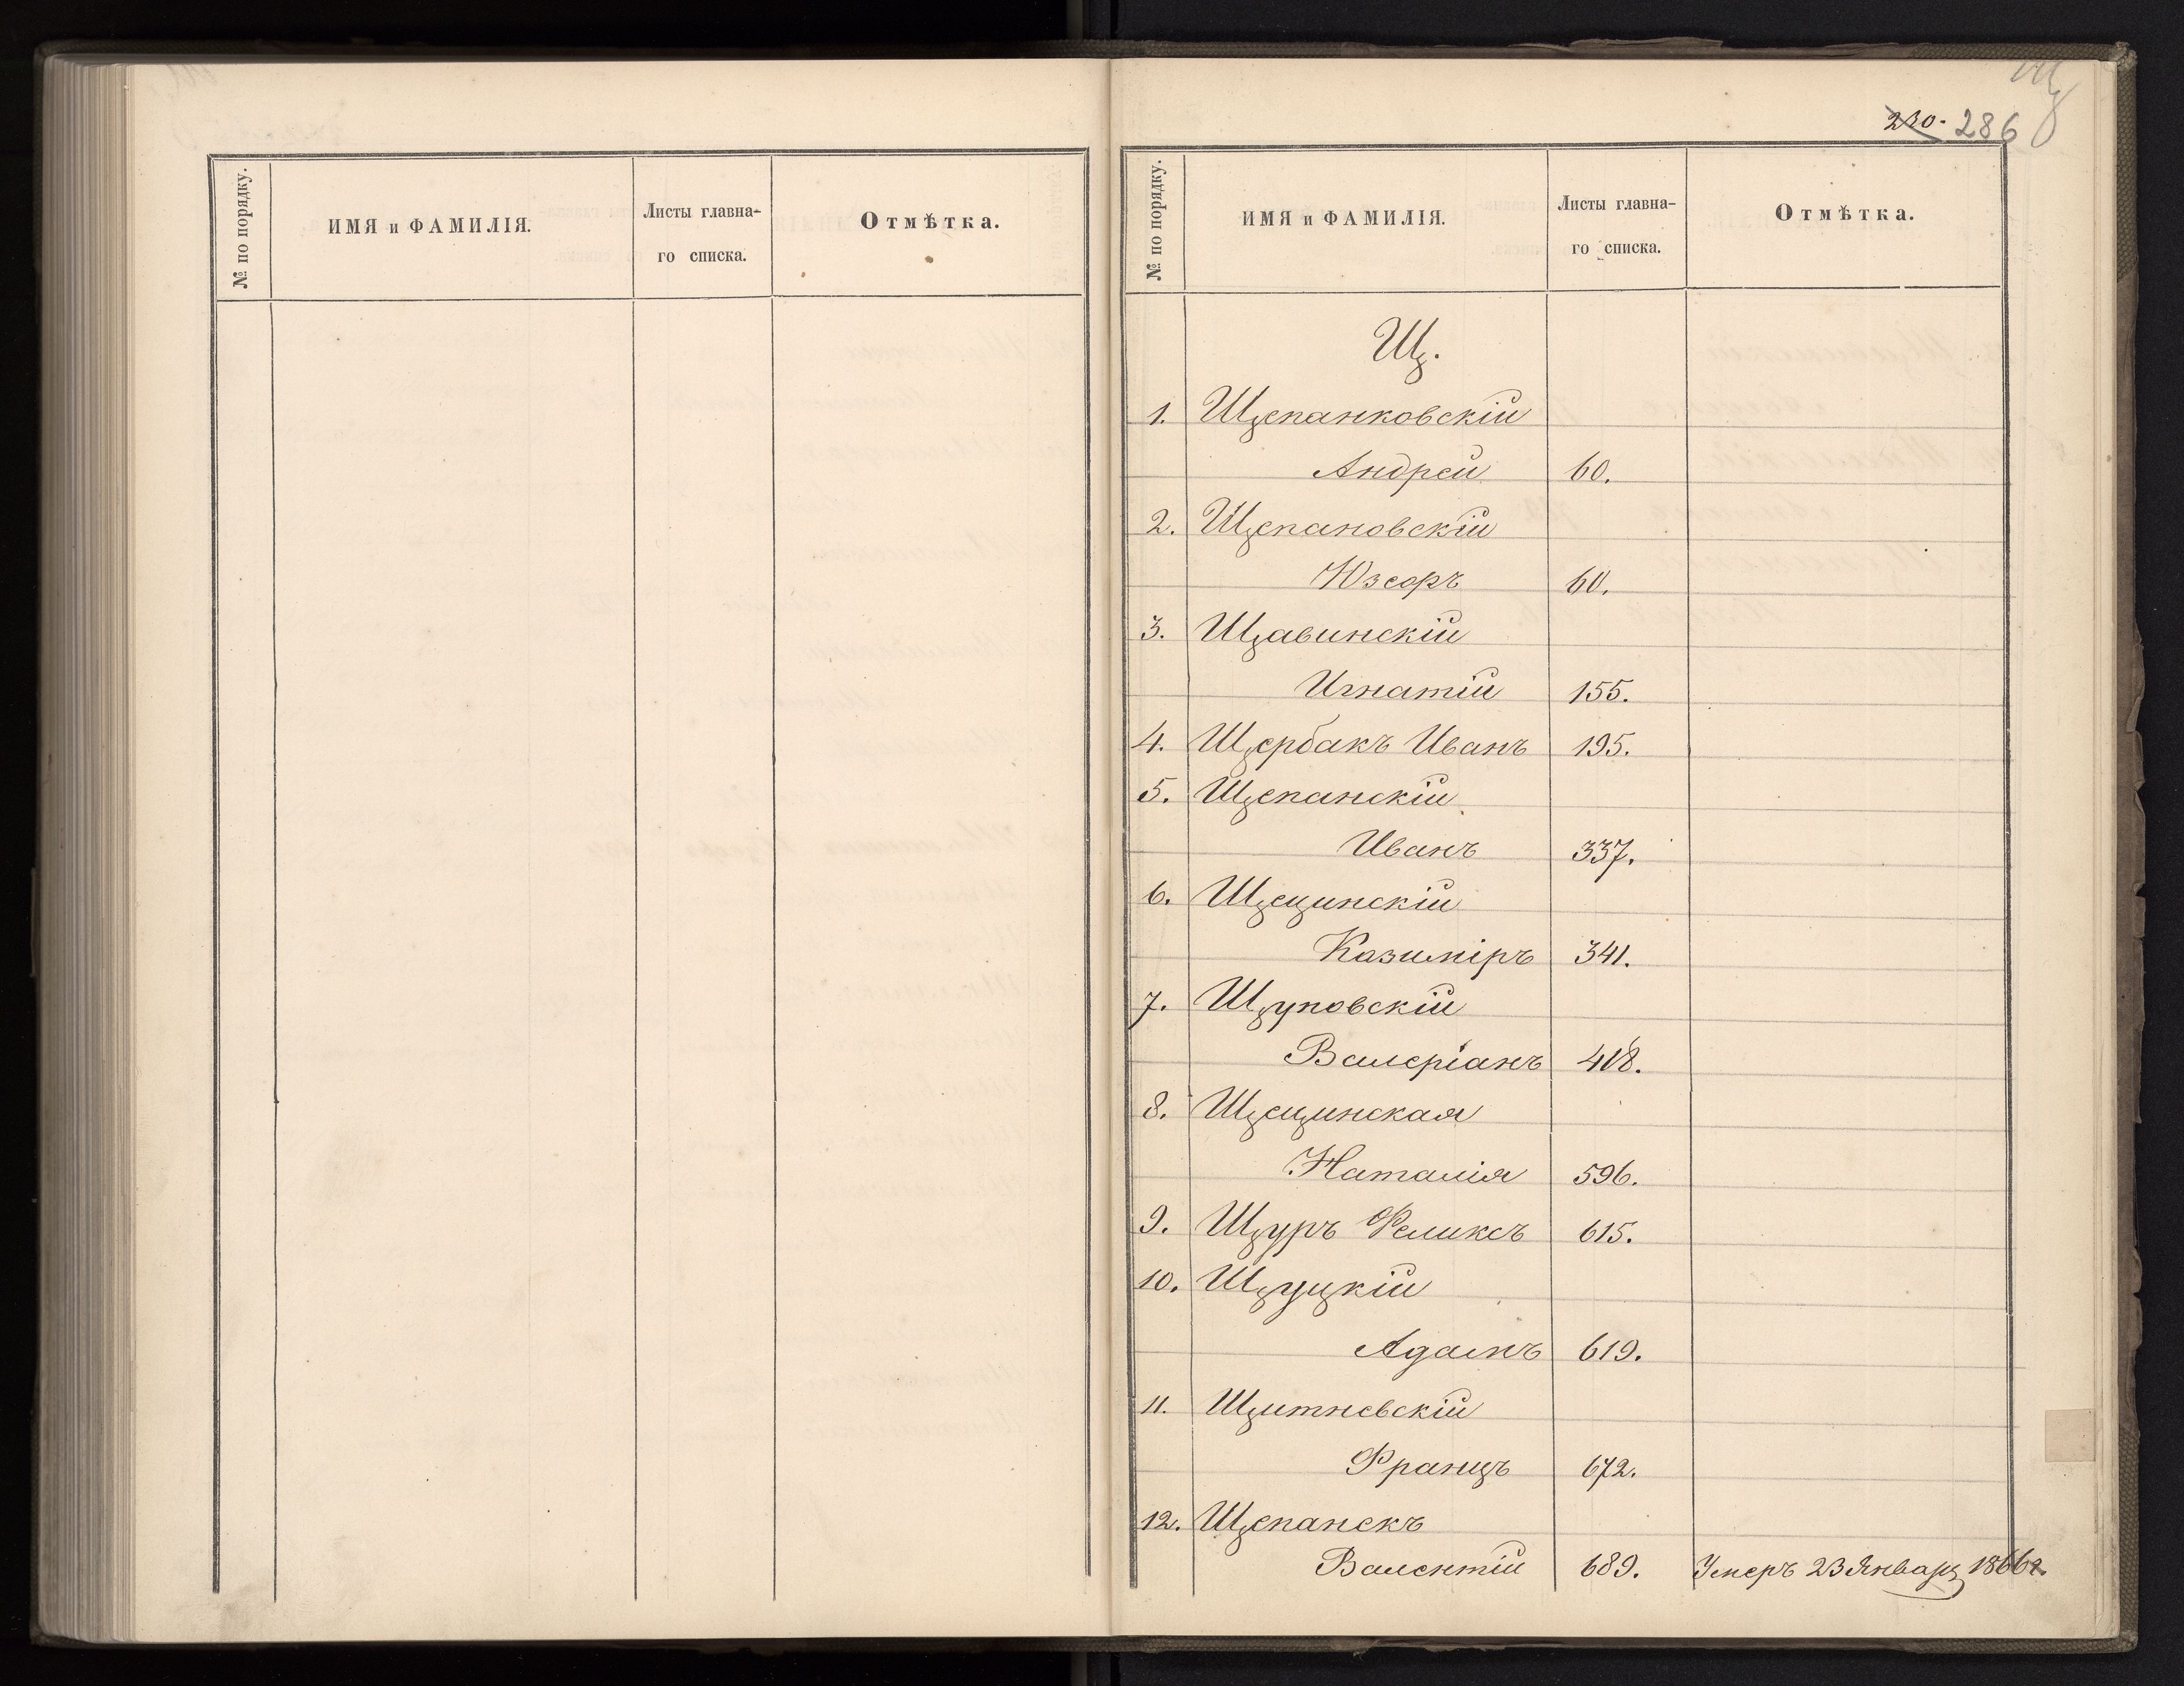 № по порядку.
ИМЯ и ФАМИЛІЯ.
Листы главна-
го списка.
Отмѣтка.
Щ
230. 286
№ по порядку.
ИМЯ и ФАМИЛІЯ.
Листы главна-
го списка.
Отмѣтка.
Щ.
1. Щепанковскій
Андрей 60.
2. Щепановскій
Юзефъ 60.
3. Щавинскій
Игнатій 155.
4. Щербакъ Иванъ 195.
5. Щепанскій
Иванъ 337.
6. Щецинскій
Казиміръ 341.
7. Щуповскій
Валеріанъ 418.
8. Щецинская
Наталія 596.
9. Щуръ Феликсъ 615.
10. Щуцкій
Адамъ 619.
11. Щитневскій
Францъ 672.
12. Щепанекъ
Валентій 689. Умеръ 23 Января 1866 г.